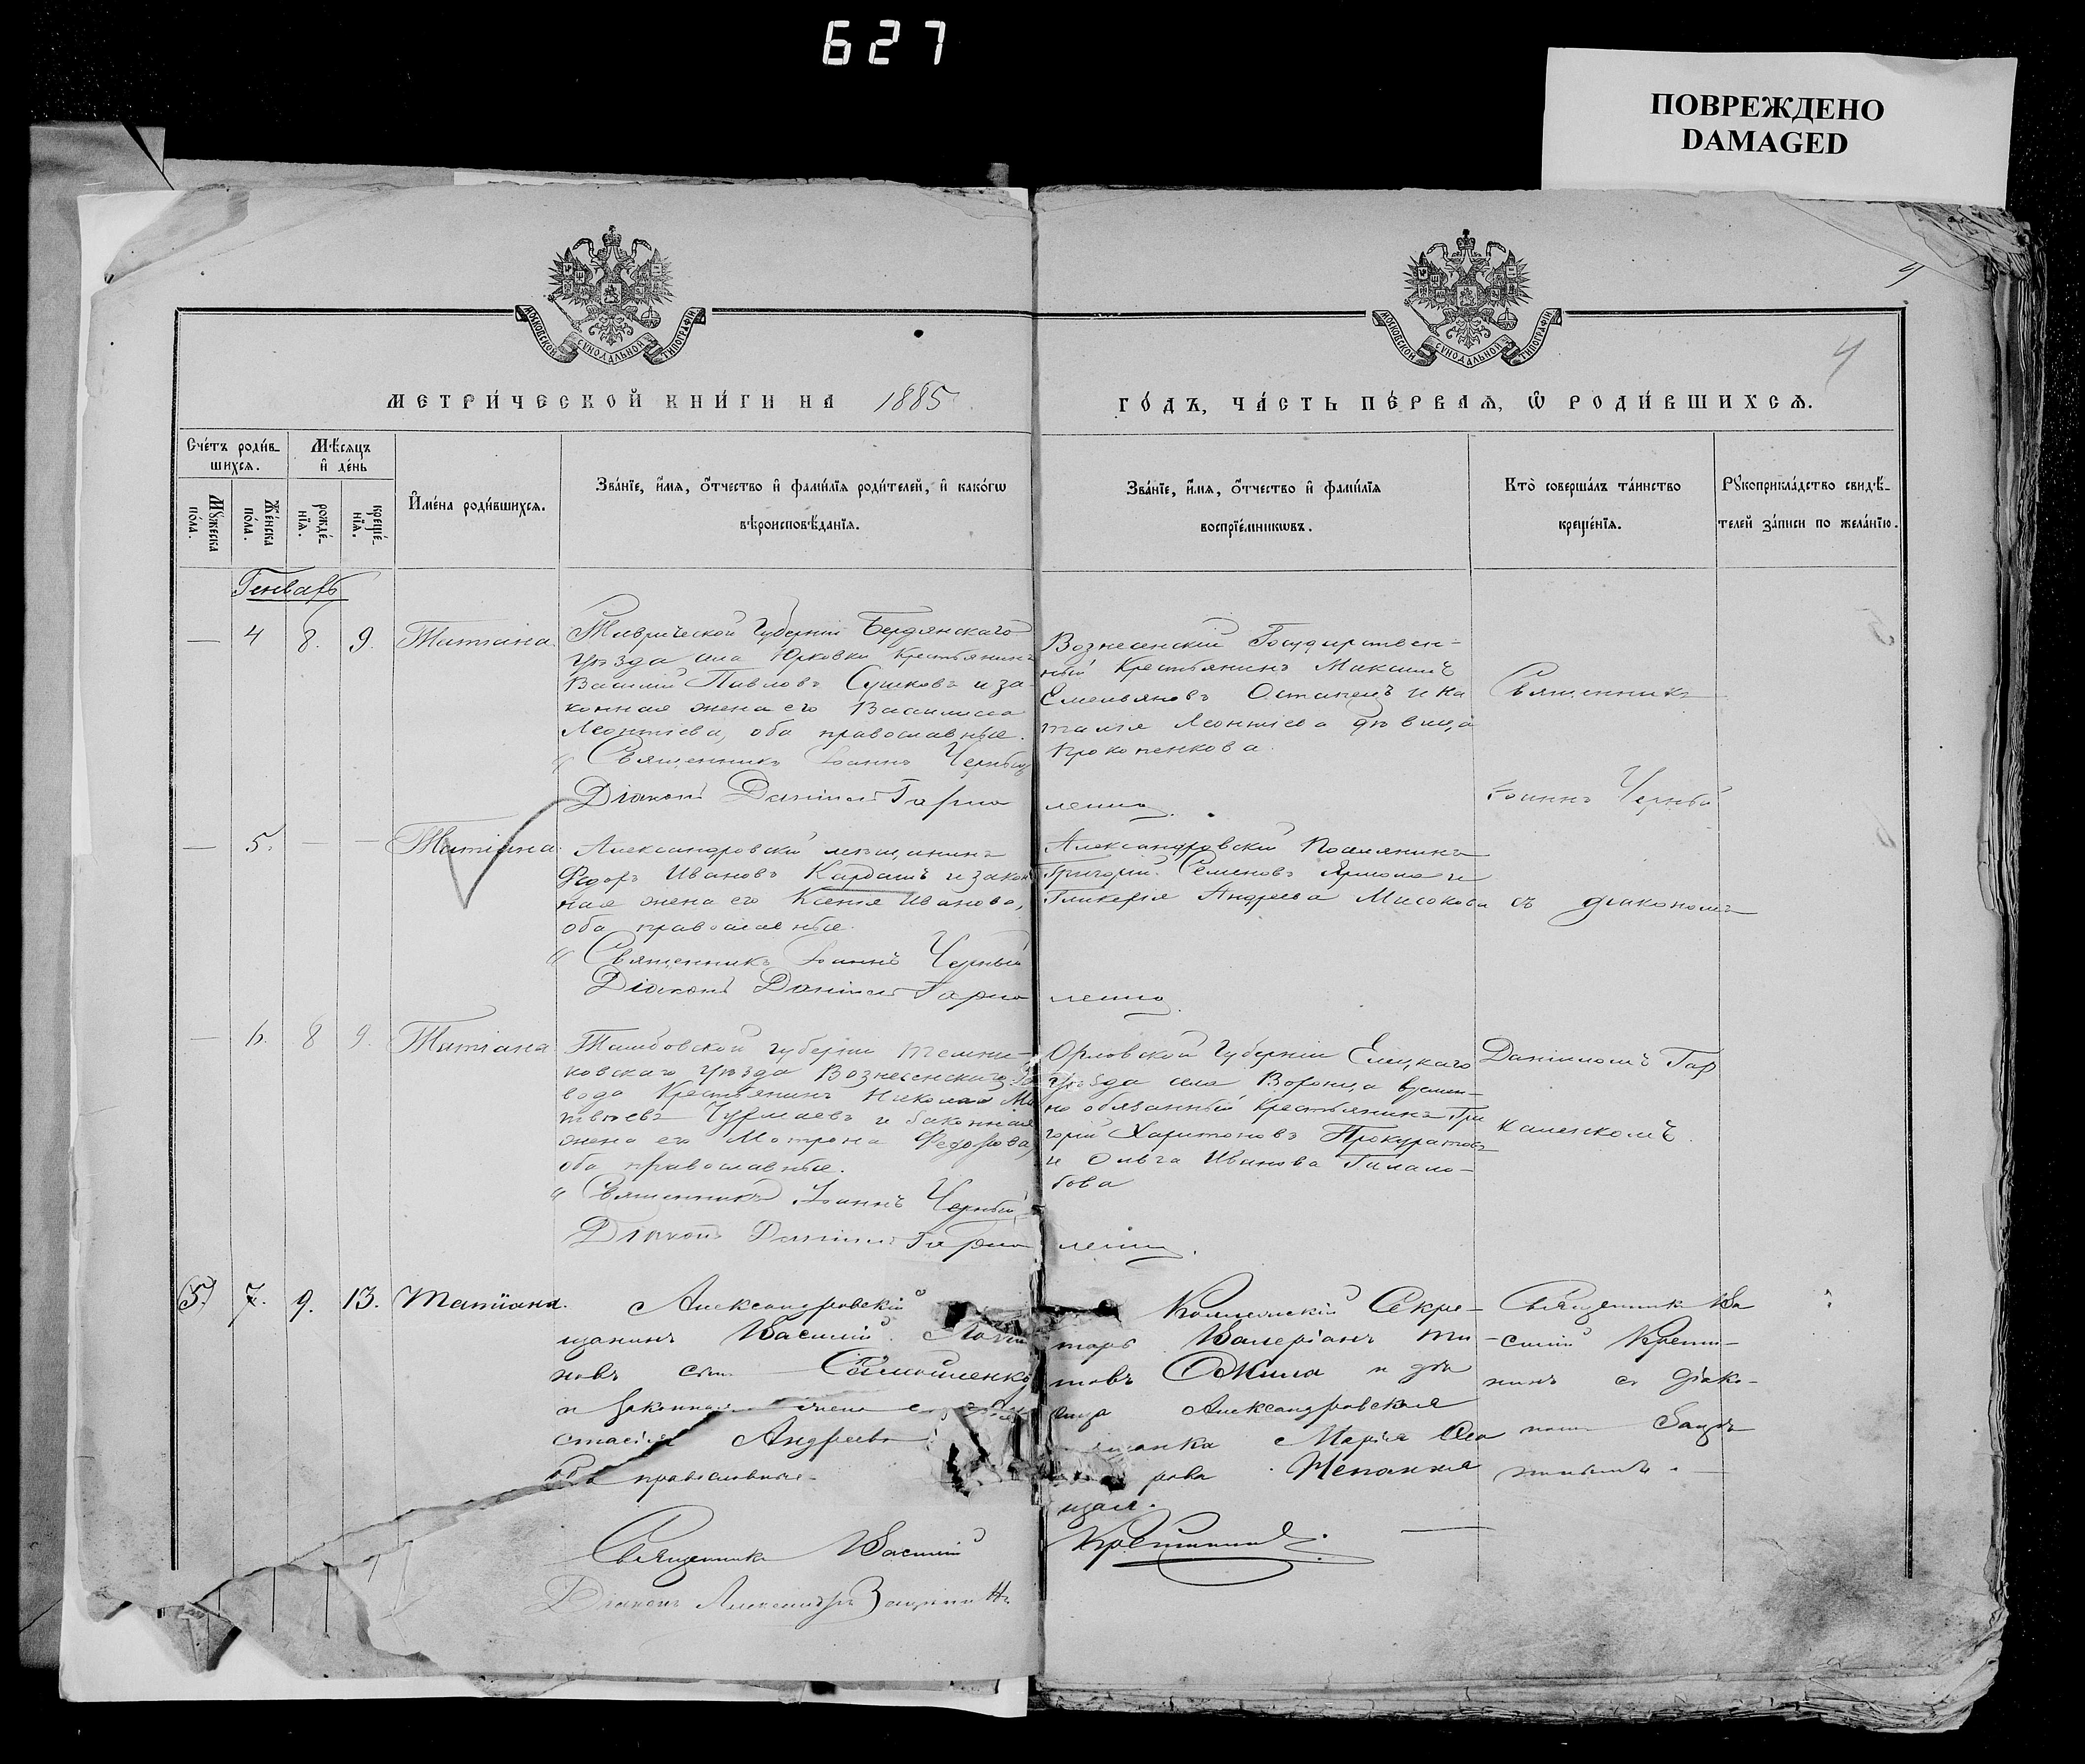 627
ПОВРЕЖДЕНО
DAMAGED
4
4
МОСКОВСКОЙ СѴНОДАЛЬНОЙ ТИПОГРАФІИ
МОСКОВСКОЙ СѴНОДАЛЬНОЙ ТИПОГРАФІИ
МЕТРИ́ЧЕСКОЙ КНИ́ГИ НА 1885 ГО́ДЪ, ЧА́СТЬ ПЕ́РВАѦ, Ѽ РОДИ́ВШИХСѦ.
Сче́тъ роди́в-
шихсѧ.
Мѣ́сѧцъ
и҆ де́нь
Мꙋ́жеска
по́ла.
Же́нска
по́ла.
рожде́-
нїѧ.
креще́-
нїѧ.
И҆мена̀ роди́вшихсѧ.
Зва́нїе, и҆́мѧ, ѻ҆́тчество и҆ фами́лїѧ роди́телей, и҆ како́гѡ
вѣроисповѣ́данїѧ.
Зва́нїе, и҆́мѧ, ѻ҆́тчество и҆ фами́лїѧ
воспрїе́мникѡвъ.
Кто̀ соверша́лъ та́инство
креще́нїѧ.
Рꙋкоприкла́дство свидѣ́-
телей за́писи по жела́нїю.
Генварь
— 4 8. 9. Татіана.
Таврической Губерніи Бердянскаго
Уѣзда села Юрковки Крестьянинъ
Василій Павловъ Сушковъ и за-
конная жена его Василиса
Леонтіева, оба православные.
Священникъ Іоаннъ Черный
Діаконъ Даніилъ Гарка ленко
Вознесенскій Государствен-
ный Крестьянинъ Максимъ
Емельяновъ Остапецъ и На
талія Леонтіева дѣвица
Прокопенкова.
Священникъ
Іоаннъ Черный
— 5. — — Татіана.
Александровскій мѣщанинъ
Федоръ Ивановъ Кардашъ и закон
ная жена его Ксенія Иванова,
оба православные.
Священникъ Іоаннъ Черный
Діаконъ Даніилъ
Александровскій Поселянинъ
Григорій Семеновъ Ярмола и
Гликерія Андреева
съ діакономъ
— 6. 8 9. Татіана
Тамбовской губерніи Темни-
ковскаго уѣзда Вознесенскаго За
вода Крестьянинъ Николай Ма
твѣевъ Чурмаевъ и законная
жена его Матрона Федорова,
оба православные.
Священникъ Іоаннъ Черный
Діаконъ Даніилъ
Орловской Губерніи Елецкаго
Уѣзда села Воронца времен-
но обязанный Крестьянинъ Гри
горій Харитоновъ Прокуратовъ
и Ольга Иванова
Даніиломъ Гар
каленкомъ.
5. 7. 9. 13. Татіана.
Александровскій
щанинъ Василій
новъ сынъ Самойленко
и законная жена его
стасія Андреева
оба православные.
Священникъ Василій
Діаконъ Александръ
Коллежскій Секре-
тарь Валеріанъ Ти-
товъ и дѣ
вица Александровская
щанка Марія
рова
щая.
Священникъ Ва
силій Крети-
нинъ съ діако-
номъ